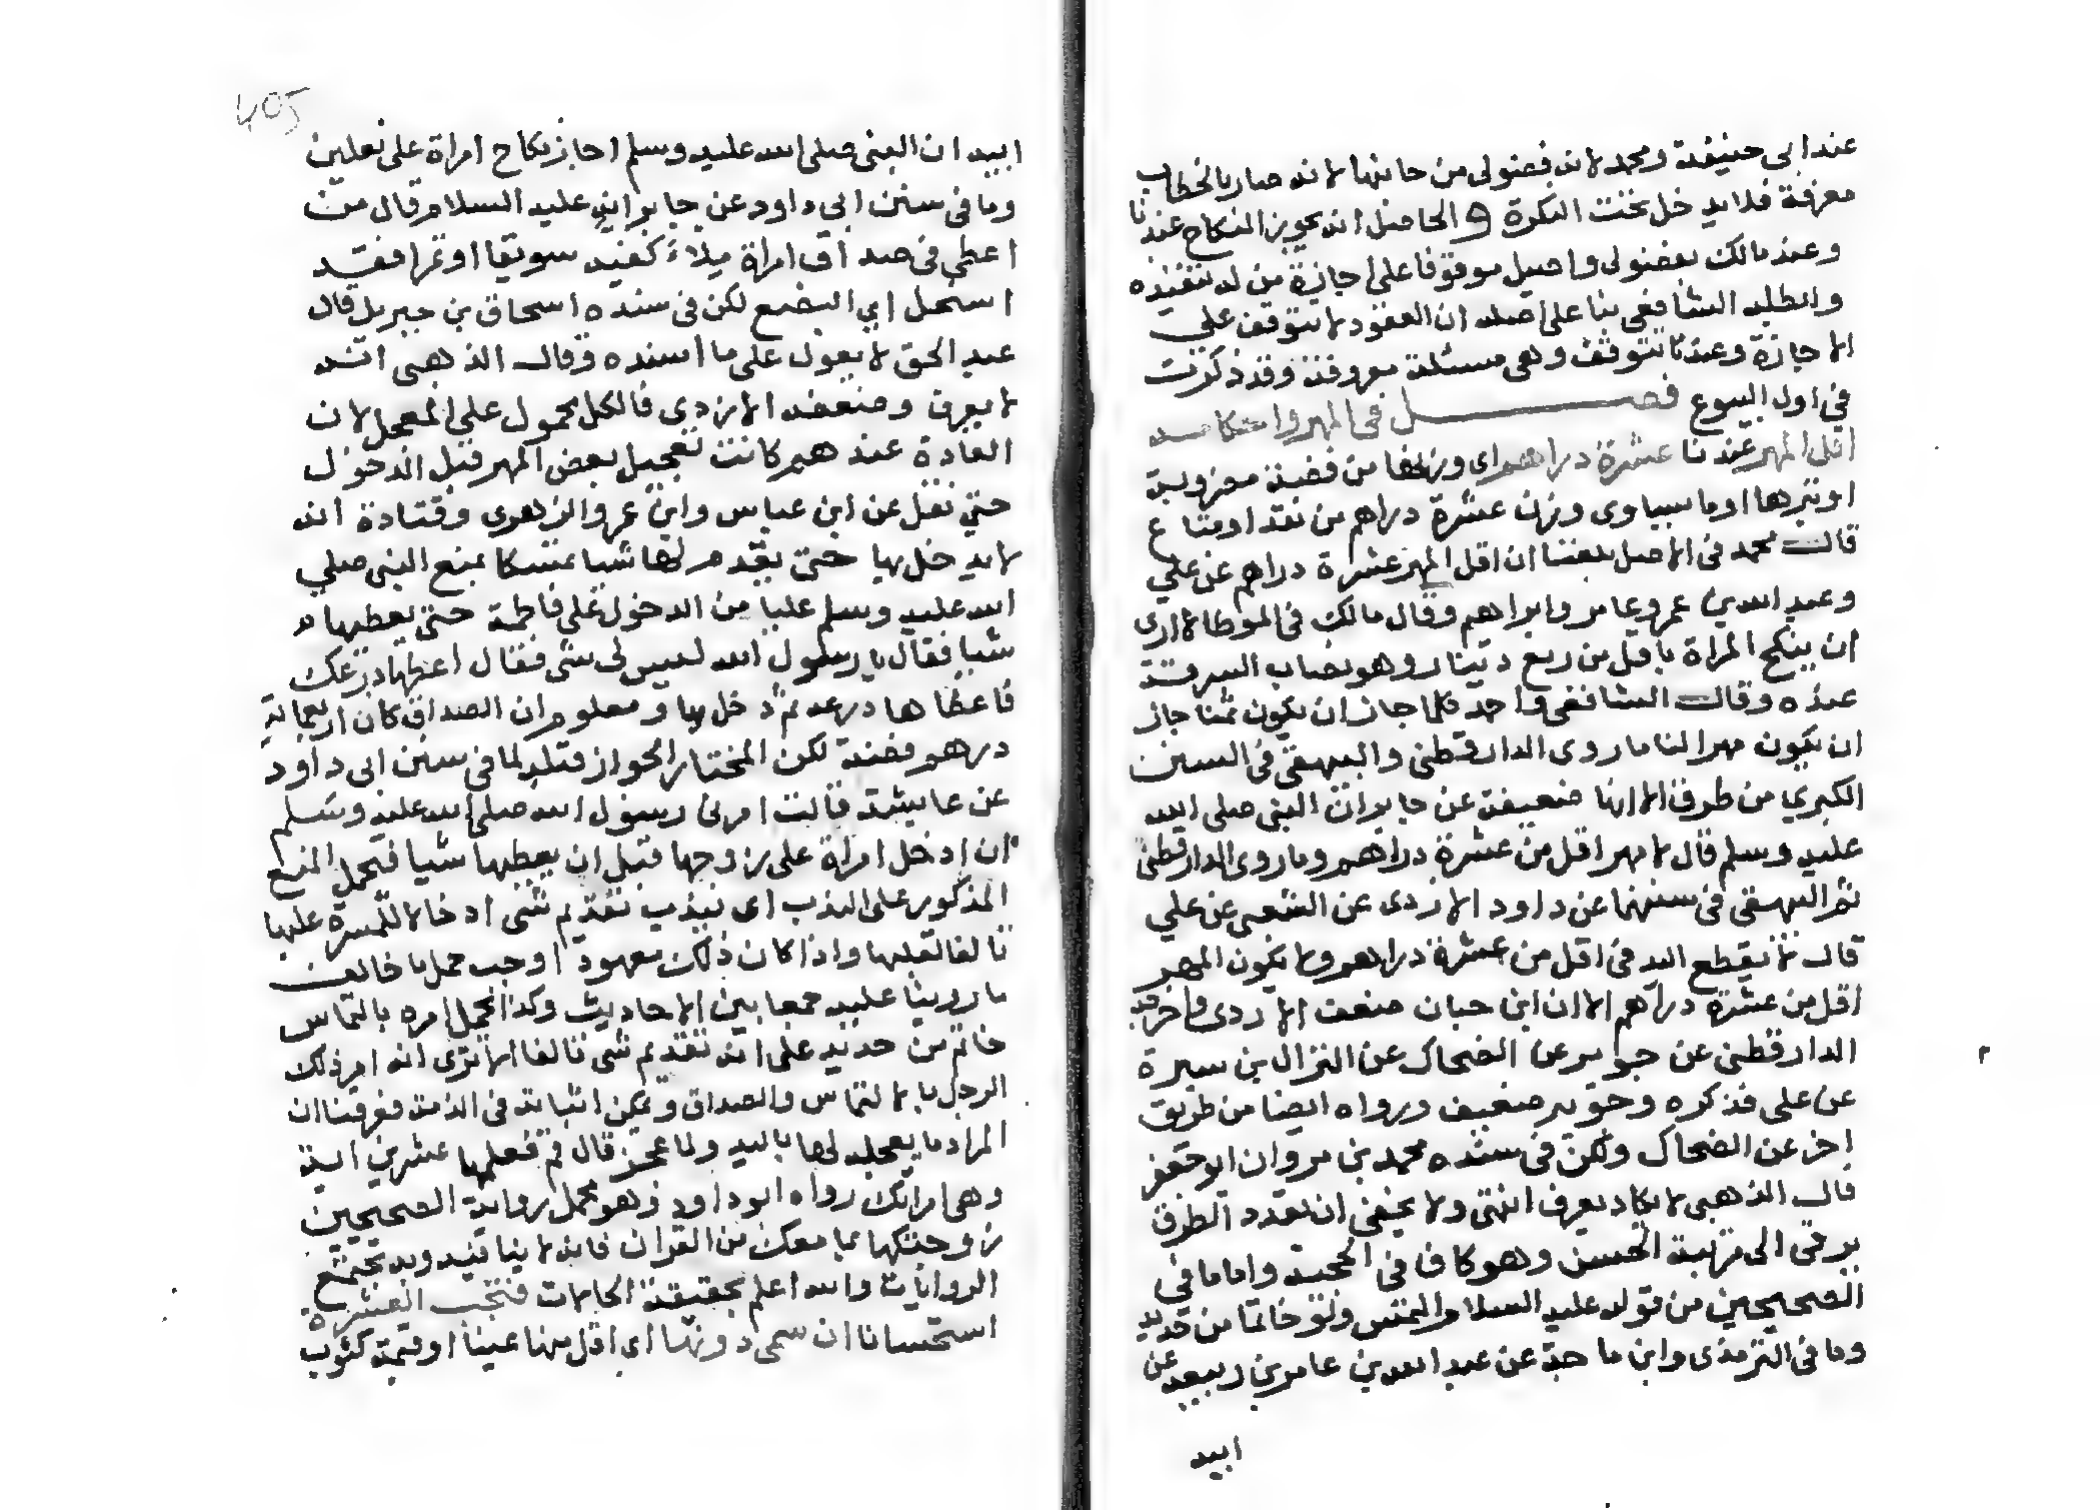 عند ابى حنيفة ومحمد لانه فضولى من جانبها لانه صار بالخطاب
معرفة فلا يدخل تحت النكرة والحاصل انه يجوز النكاح عندنا
وعند مالك بفضولى واصيل موقوفا على اجازة من له تنفيذه
وابطله الشافعى بنا على اصله ان العقود لا تتوقف على
الاجازة وعندنا تتوقف وهى مسئلة معروفة وقد ذكرت
فى اول البيوع فصل فى المهر واحكامه
اقل المهر عندنا عشرة دراهم اى وزنها من فضة مضروبة
او تبرها او ما يساوى وزن عشرة دراهم من نقد او متاع
قال محمد فى الاصل بلغنا ان اقل المهر عشرة دراهم عن على
وعبد الله بن عمر وعامر وابراهم وقال مالك فى الموطا لا ارى
ان ينكح المراة باقل من ربع دينار وهو نصاب السرقة
عنده وقال الشافعى واحمد كلما جاز ان يكون ثمنا جاز
ان يكون مهرا لنا ما روى الدارقطنى والبيهقى فى السنن
الكبرى من طرق الا انها ضعيفة عن جابر ان النبى صلى الله
عليه وسلم قال لا مهر اقل من عشرة دراهم وما روى الدارقطنى
ثم البيهقى فى سننهما عن داود الازدى عن الشعبى عن على
قال لا تقطع اليد فى اقل من عشرة دراهم ولا يكون المهر
اقل من عشرة دراهم الا ان ابن حبان ضعف الازدى واخرجه
الدارقطنى عن جويبر عن الضحاك عن النزال بن سبرة
عن على فذكره وجويبر ضعيف ورواه ايضا من طريق
اخر عن الضحاك ولكن فى سنده محمد بن مروان ابو جعفر
قال الذهبى لا يكاد يعرف انتهى ولا يخفى ان تعدد الطرق
يرقى الى مرتبة الحسن وهو كاف فى الحجية واما ما فى
الصحيحين من قوله عليه السلام التمس ولو خاتما من حديد
وما فى الترمذى وابن ماجة عن عبد الله بن عامر بن ربيعة عن
ابيه
405
ابيه ان النبى صلى الله عليه وسلم اجاز نكاح امراة على نعلين
وما فى سنن ابى داود عن جابر انه عليه السلام قال من
اعطى فى صداق امراة ملاء كفيه سويقا او تمرا فقد
استحل اى البضع لكن فى سنده اسحاق بن جبريل قال
عبد الحق لا يعول على ما اسنده وقال الذهبى انه
لا يعرف وضعفه الازدى فالكل محمول على المعجل لان
العادة عندهم كانت تعجيل بعض المهر قبل الدخول
حتى نقل عن ابن عباس وابن عمر والزهرى وقتادة انه
لا يدخل بها حتى يقدم لها شيا تمسكا بمنع النبى صلى
الله عليه وسلم عليا من الدخول على فاطمة حتى يعطيها
شيا فقال يا رسول الله ليس لى شى فقال اعطها درعك
فاعطاها درعه ثم دخل بها ومعلوم ان الصداق كان اربعماية
درهم فضة لكن المختار الجواز قبله لما فى سنن ابى داود
عن عايشة قالت امرنى رسول الله صلى الله عليه وسلم
ان ادخل امراة على زوجها قبل ان يعطيها شيا فيحمل المنع
المذكور على الندب اى يندب تقديم شى ادخالا للمسرة عليها
تالفا لقلبها واذا كان ذلك معهودا وجب حمل ما خالف
ما روينا عليه جمعا بين الاحاديث وكذا يحمل امره بالتماس
خاتم من حديد على انه تقديم شى تالفا الا ترى انه امر ذلك
الرجل بالالتماس والصداق يمكن اثباته فى الذمة فعرفنا ان
المراد ما يعجله لها باليد ولما عجز قال قم فعلمها عشرين اية
وهى امراتك رواه ابو داود وهو محمل رواية الصحيحين
زوجتكها بما معك من القران فانه لا ينافيه وبه تجتمع
الروايات والله اعلم بحقيقة الحالات فتجب العشرة
استحسانا ان سمى دونها اى اقل منها عينا او قيمة كثوب